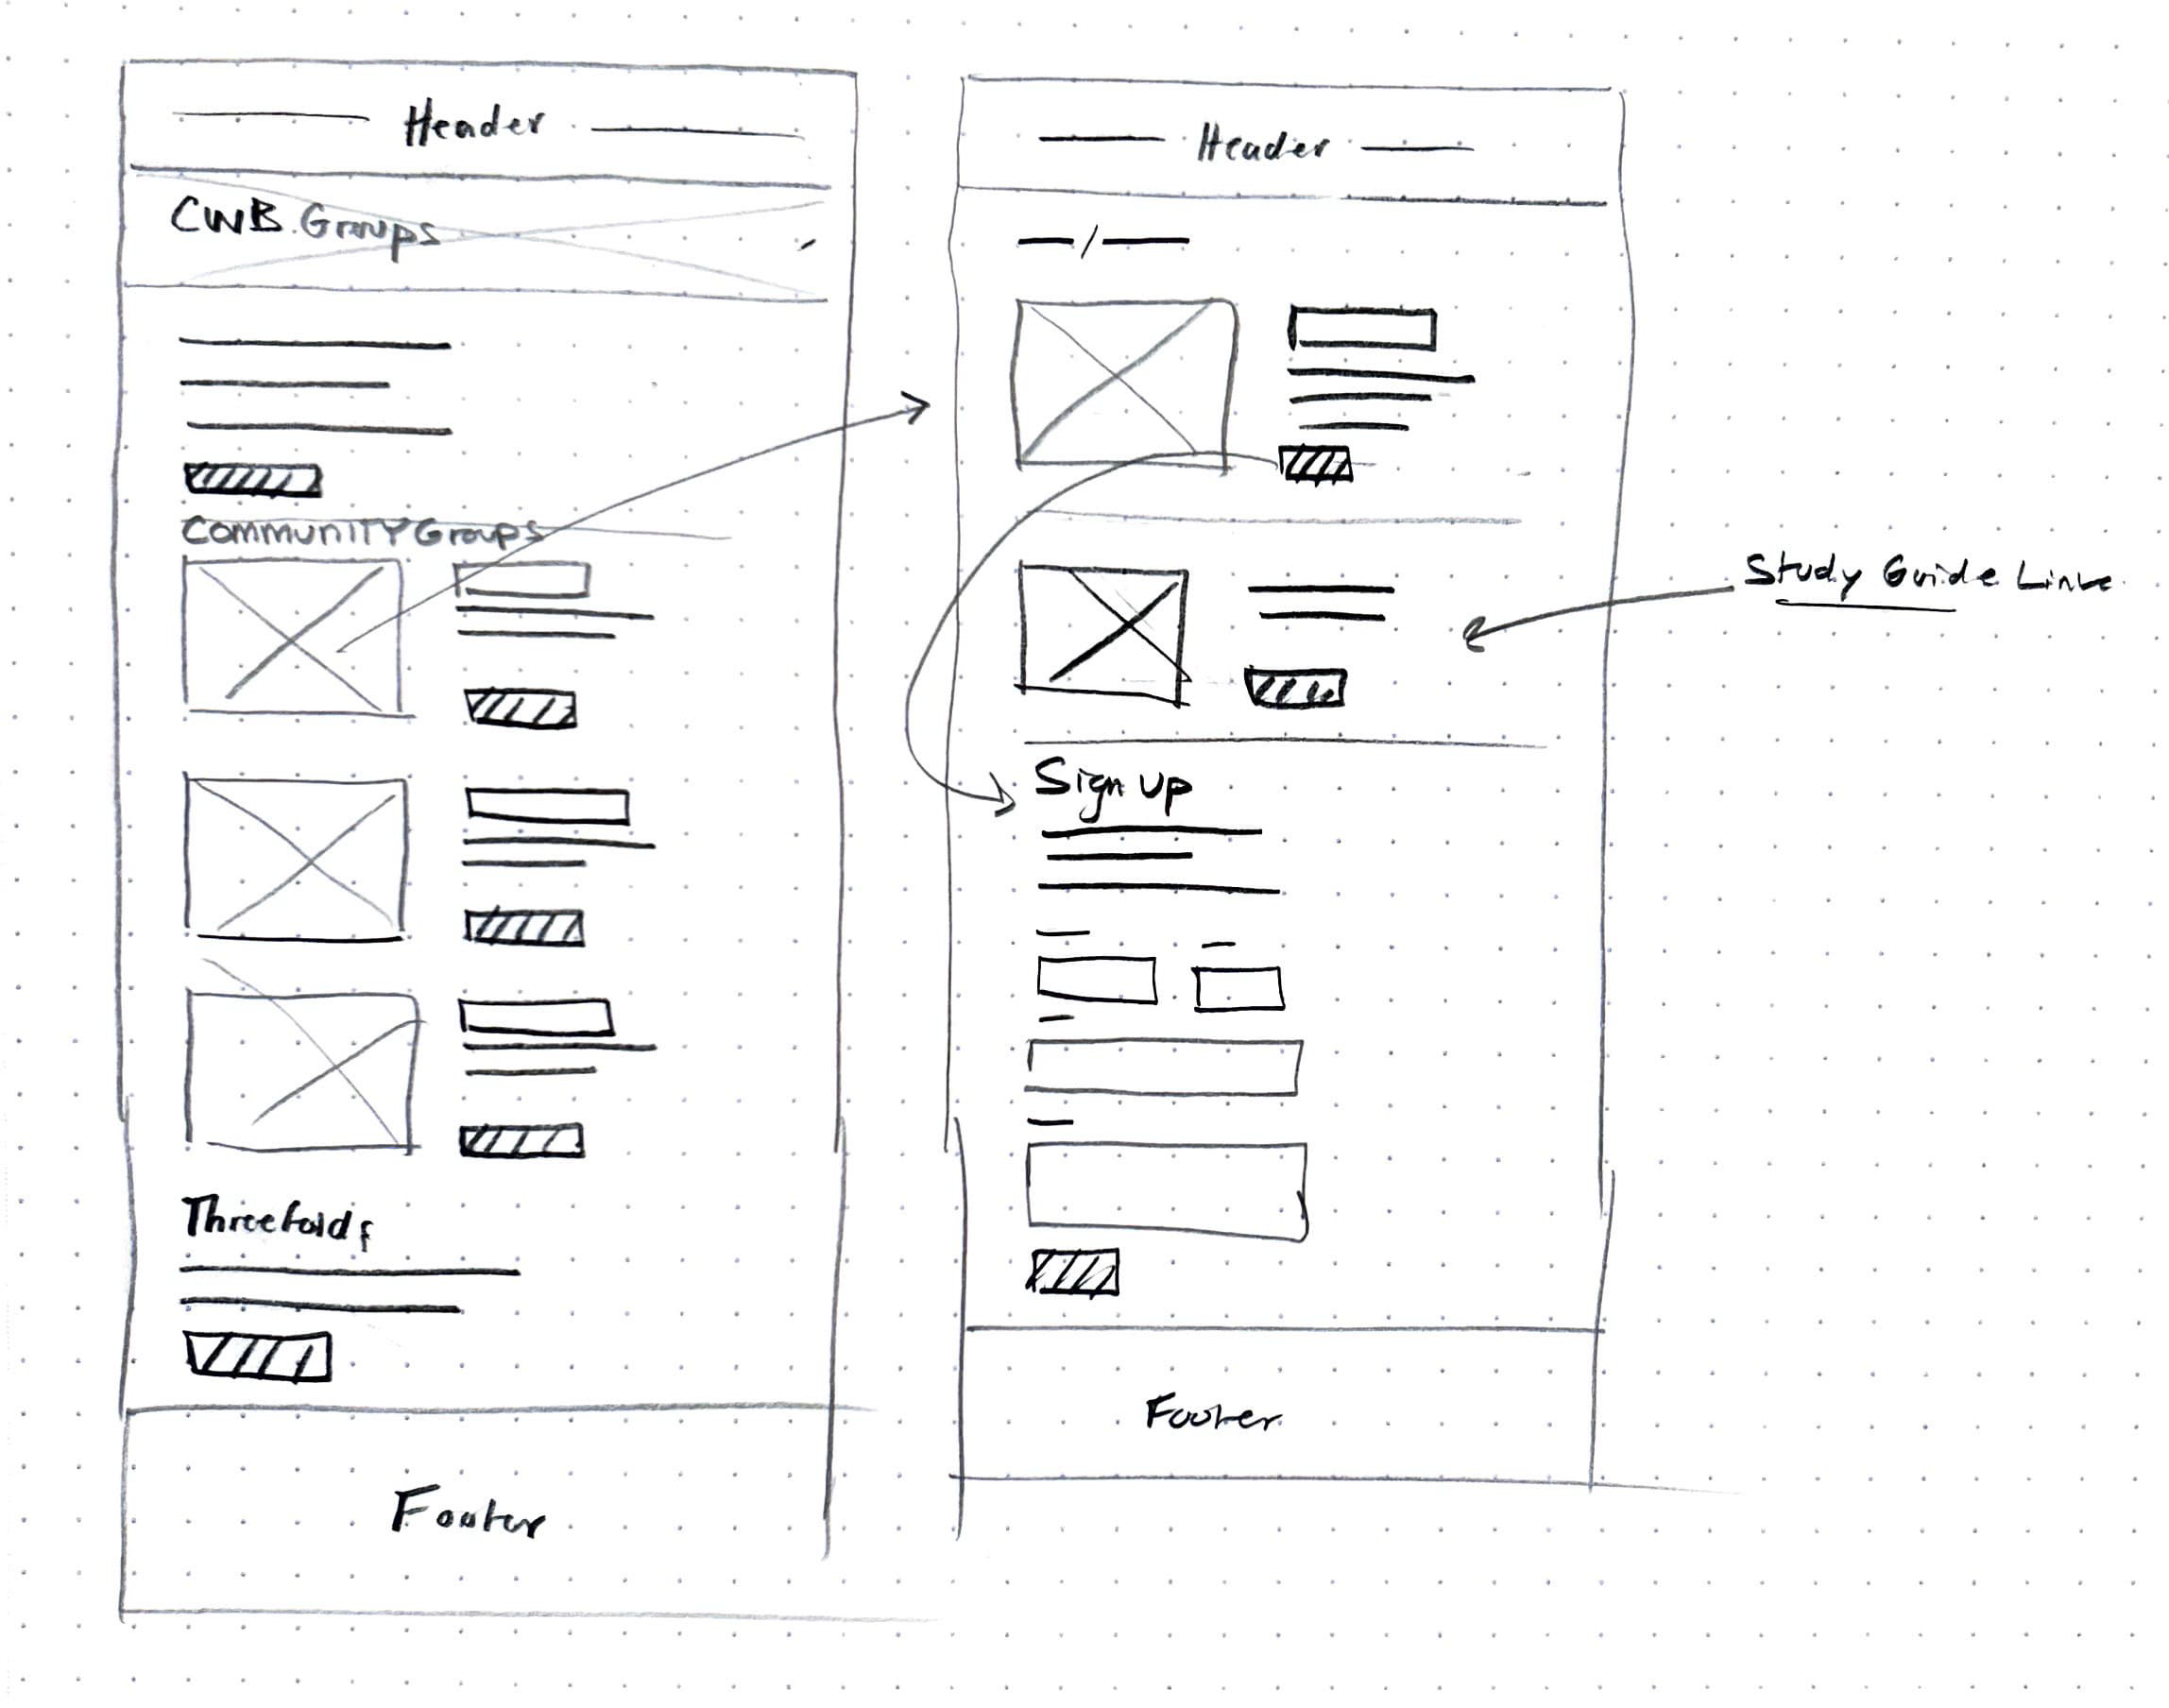 Header
CWB Groups
Community Groups
Threefolds
Footer
Header
Study Guide Link
Sign up
Footer